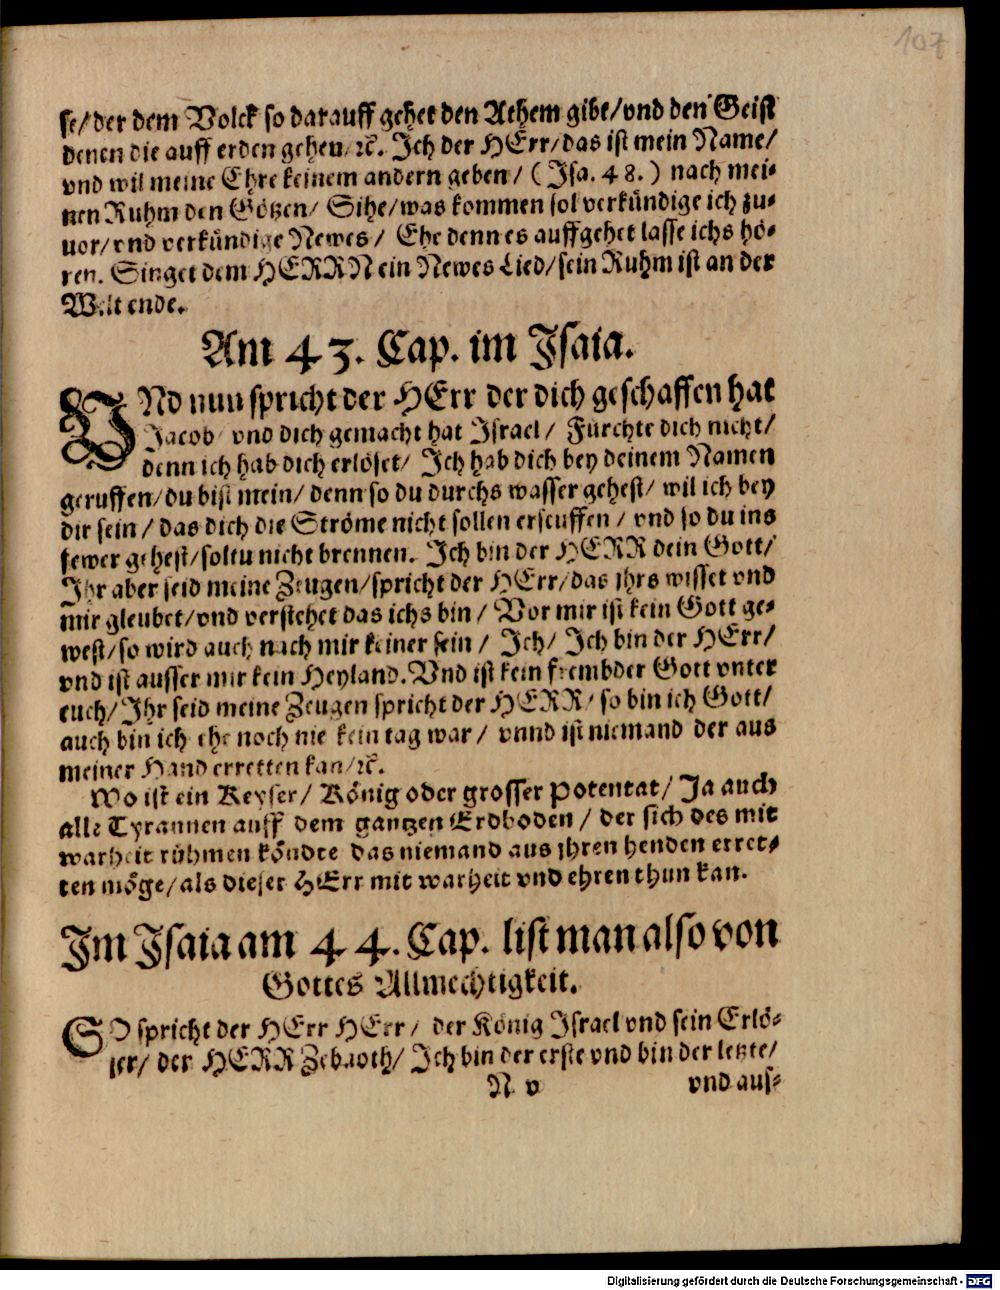 107
se/der dem Volck so darauff gehet den Athem gibt/vnd den Geist
denen die auff erden gehen/ꝛc. Ich der HErr/das ist mein Name/
vnd wil meine Ehre keinem andern geben/ (Isa. 48.) nach mei-
nen Ruhm den Götzen/ Sihe/was kommen sol verkündige ich zu-
uor/vnd verkündige Newes/ Ehe denn es auffgehet lasse ichs hö-
ren. Singet dem HERRN ein Newes Lied/sein Ruhm ist an der
Welt ende.
Am 43. Cap. im Isaia.
VNd nun spricht der HErr der dich geschaffen hat
Jacob/ vnd dich gemacht hat Israel/ Fürchte dich nicht/
denn ich hab dich erlöset/ Ich hab dich bey deinem Namen
geruffen/du bist mein/ denn so du durchs wasser gehest/ wil ich bey
dir sein/ das dich die Ströme nicht sollen erseuffen/ vnd so du ins
fewer gehest/soltu nicht brennen. Ich bin der HERR dein Gott/
Ihr aber seid meine Zeugen/spricht der HErr/das ihrs wisset vnd
mir gleubet/vnd verstehet das ichs bin/ Vor mir ist kein Gott ge-
west/so wird auch nach mir keiner sein/ Ich/ Ich bin der HErr/
vnd ist ausser mir kein Heyland. Vnd ist kein frembder Gott vnter
euch/Ihr seid meine Zeugen spricht der HERR/ so bin ich Gott/
auch bin ich ehe noch nie kein tag war/ vnnd ist niemand der aus
meiner Hand erretten kan/ꝛc.
Wo ist ein Keyser/ König oder grosser Potentat/ Ja auch
alle Tyrannen auff dem gantzen Erdboden/ der sich des mit
warheit rühmen köndte das niemand aus ihren henden erret-
ten möge/als dieser HErr mit warheit vnd ehren thun kan.
Im Isaia am 44. Cap. list man also von
Gottes Allmechtigkeit.
SO spricht der HErr HErr/ der König Israel vnd sein Erlö-
ser/ der HERR Zebaoth/ Ich bin der erste vnd bin der letzte/
N v vnd aus-
Digitalisierung gefördert durch die Deutsche Forschungsgemeinschaft - DFG